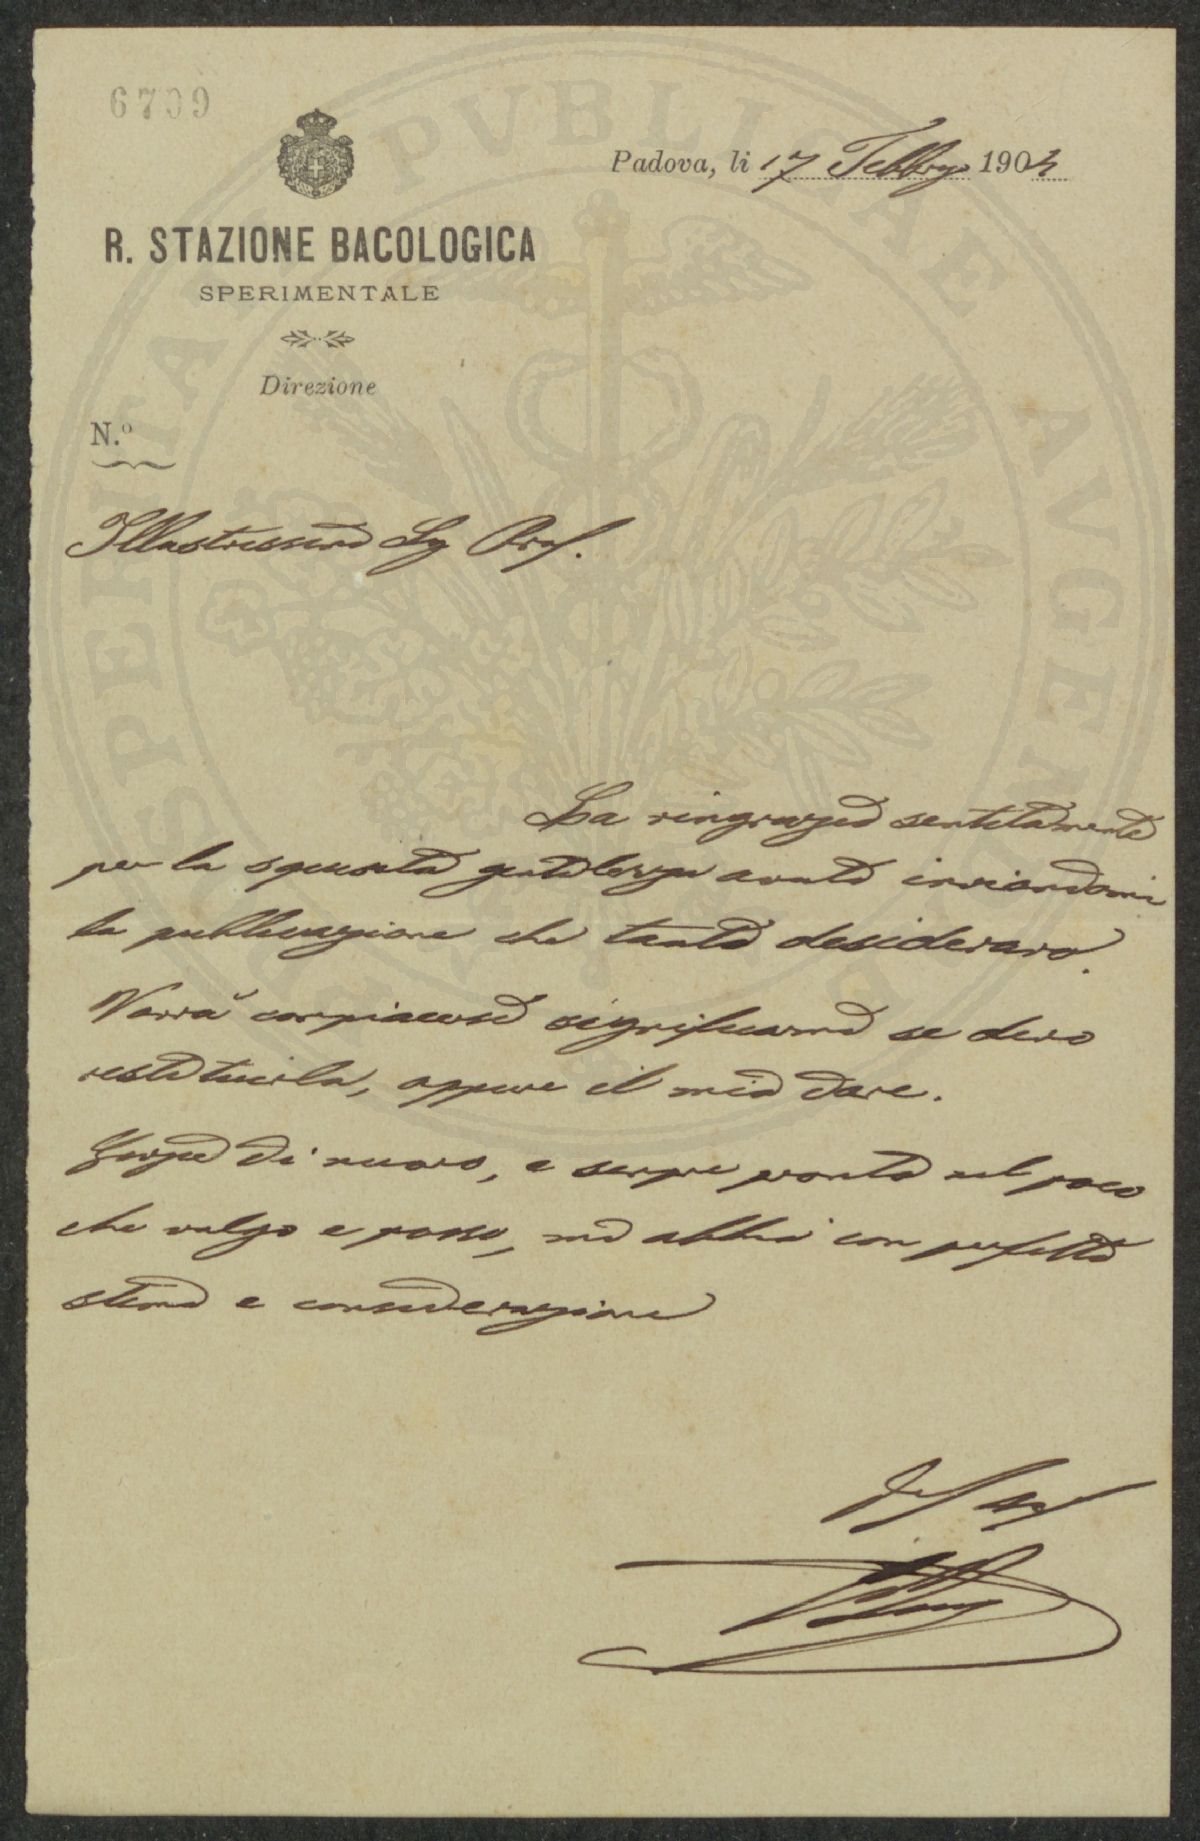 6709
Padova, li 17 Febbrajo 1904
R. STAZIONE BACOLOGICA
SPERIMENTALE
Direzione
N.º
Illustrissimo Sig Prof.
La ringrazio sentitamente
per la squisita gentilezza avuta inviandomi
la pubblicazione che tanto desideravo.
Vorrà compiacersi significarmi se devo
restituirla, oppure il mio dare.
Grazie di nuovo, e sempre pronto nel poco
che valgo e posso, mi abbia con perfetta
stima e considerazione
PUBLICAE